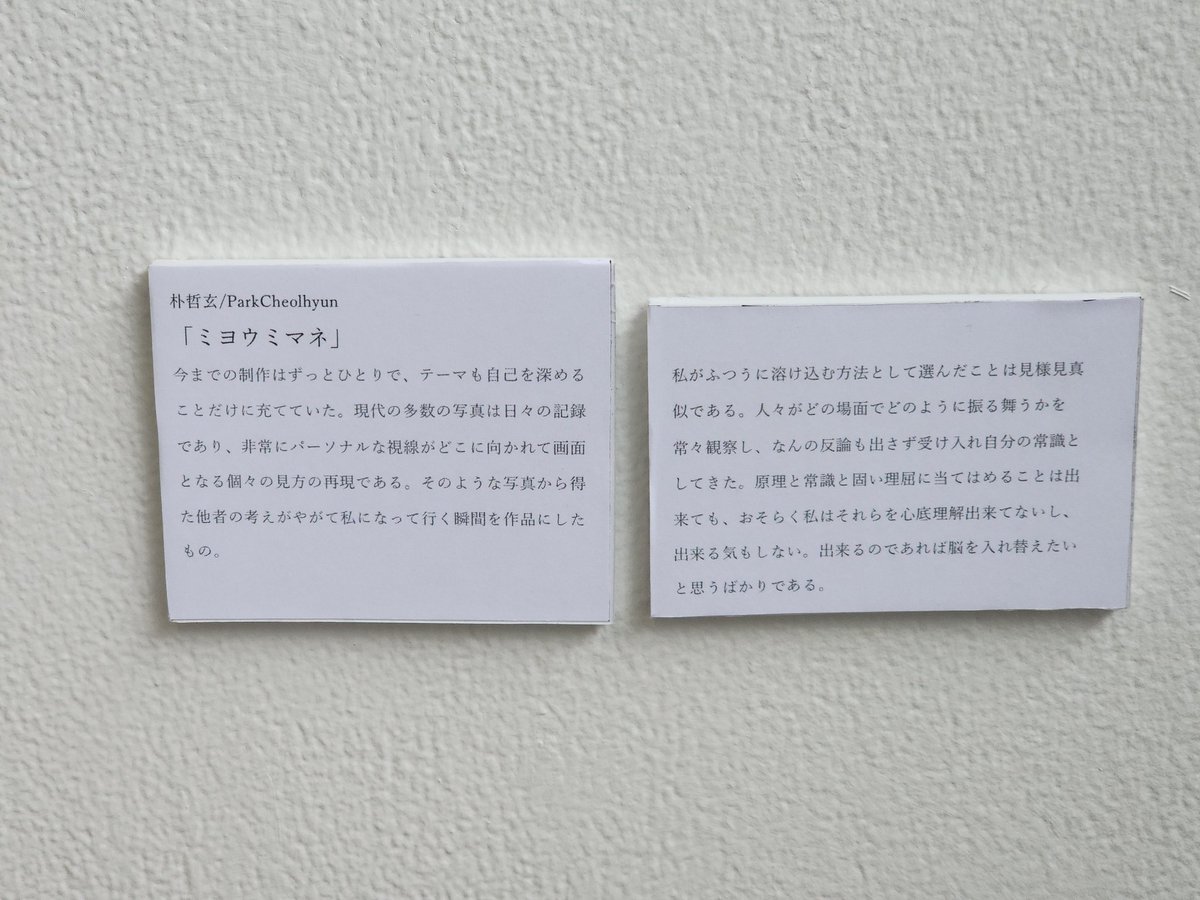 朴哲玄/ParkCheolhyun
「ミヨウミマネ」
今までの制作はずっとひとりで、テーマも自己を深める
ことだけに充てていた。現代の多数の写真は日々の記録
であり、非常にパーソナルな視線がどこに向かれて画面
となる個々の見方の再現である。そのような写真から得
た他者の考えがやがて私になって行く瞬間を作品にした
もの。
私がふつうに溶け込む方法として選んだことは見様見真
似である。人々がどの場面でどのように振る舞うかを
常々観察し、なんの反論も出さず受け入れ自分の常識と
してきた。原理と常識と固い理屈に当てはめることは出
来ても、おそらく私はそれらを心底理解出来てないし、
出来る気もしない。出来るのであれば脳を入れ替えたい
と思うばかりである。